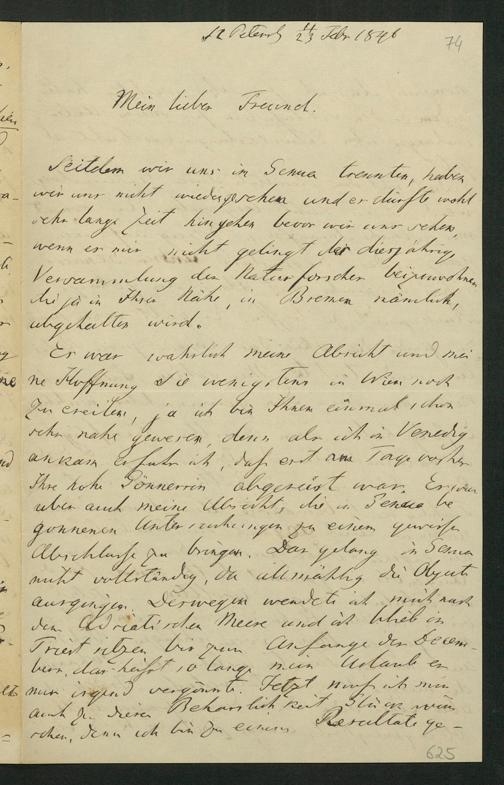 St Petersb 11/23 Febr 1846
74
Mein lieber Freund.
Seitdem wir uns in Genua trennten, haben
wir uns nicht wiedergesehen und es dürfte wohl
sehr lange Zeit hingehen bevor wir uns sehen,
wenn es mir nicht gelingt der diesjährig
Versammlung der Naturforscher beizuwohnen
die ja in Ihrer Nähe, in Bremen nämlich,
abgehalten wird.
Es war wahrlich meine Absicht und mei
ne Hoffnung Sie wenigstens in Wien noch
zu ereilen, ja ich bin Ihnen einmal schon
sehr nahe gewesen, denn als ich in Venedig
ankam erfuhr ich, daß erst am Tage vorher
Ihre hohe Gönnerin abgereist war. Es war
aber auch meine Absicht, die in Genua be
gonnenen Untersuchungen zu einem gewissen
Abschlusse zu bringen. Das gelang in Genua
nicht vollständig, da allmählig die Objecte
ausgingen. Deswegen wendete ich mich nach
dem Adriatischen Meere und ich blieb in
Triest sitzen bis zum Anfange des Decem-
bers, das heißt so lange mein Urlaub es
nur irgend vergönnte. Jetzt muß ich mir
auch zu dieser Beharrlichkeit Glück wün
schen, denn ich bin zu einem Resultate ge-
625